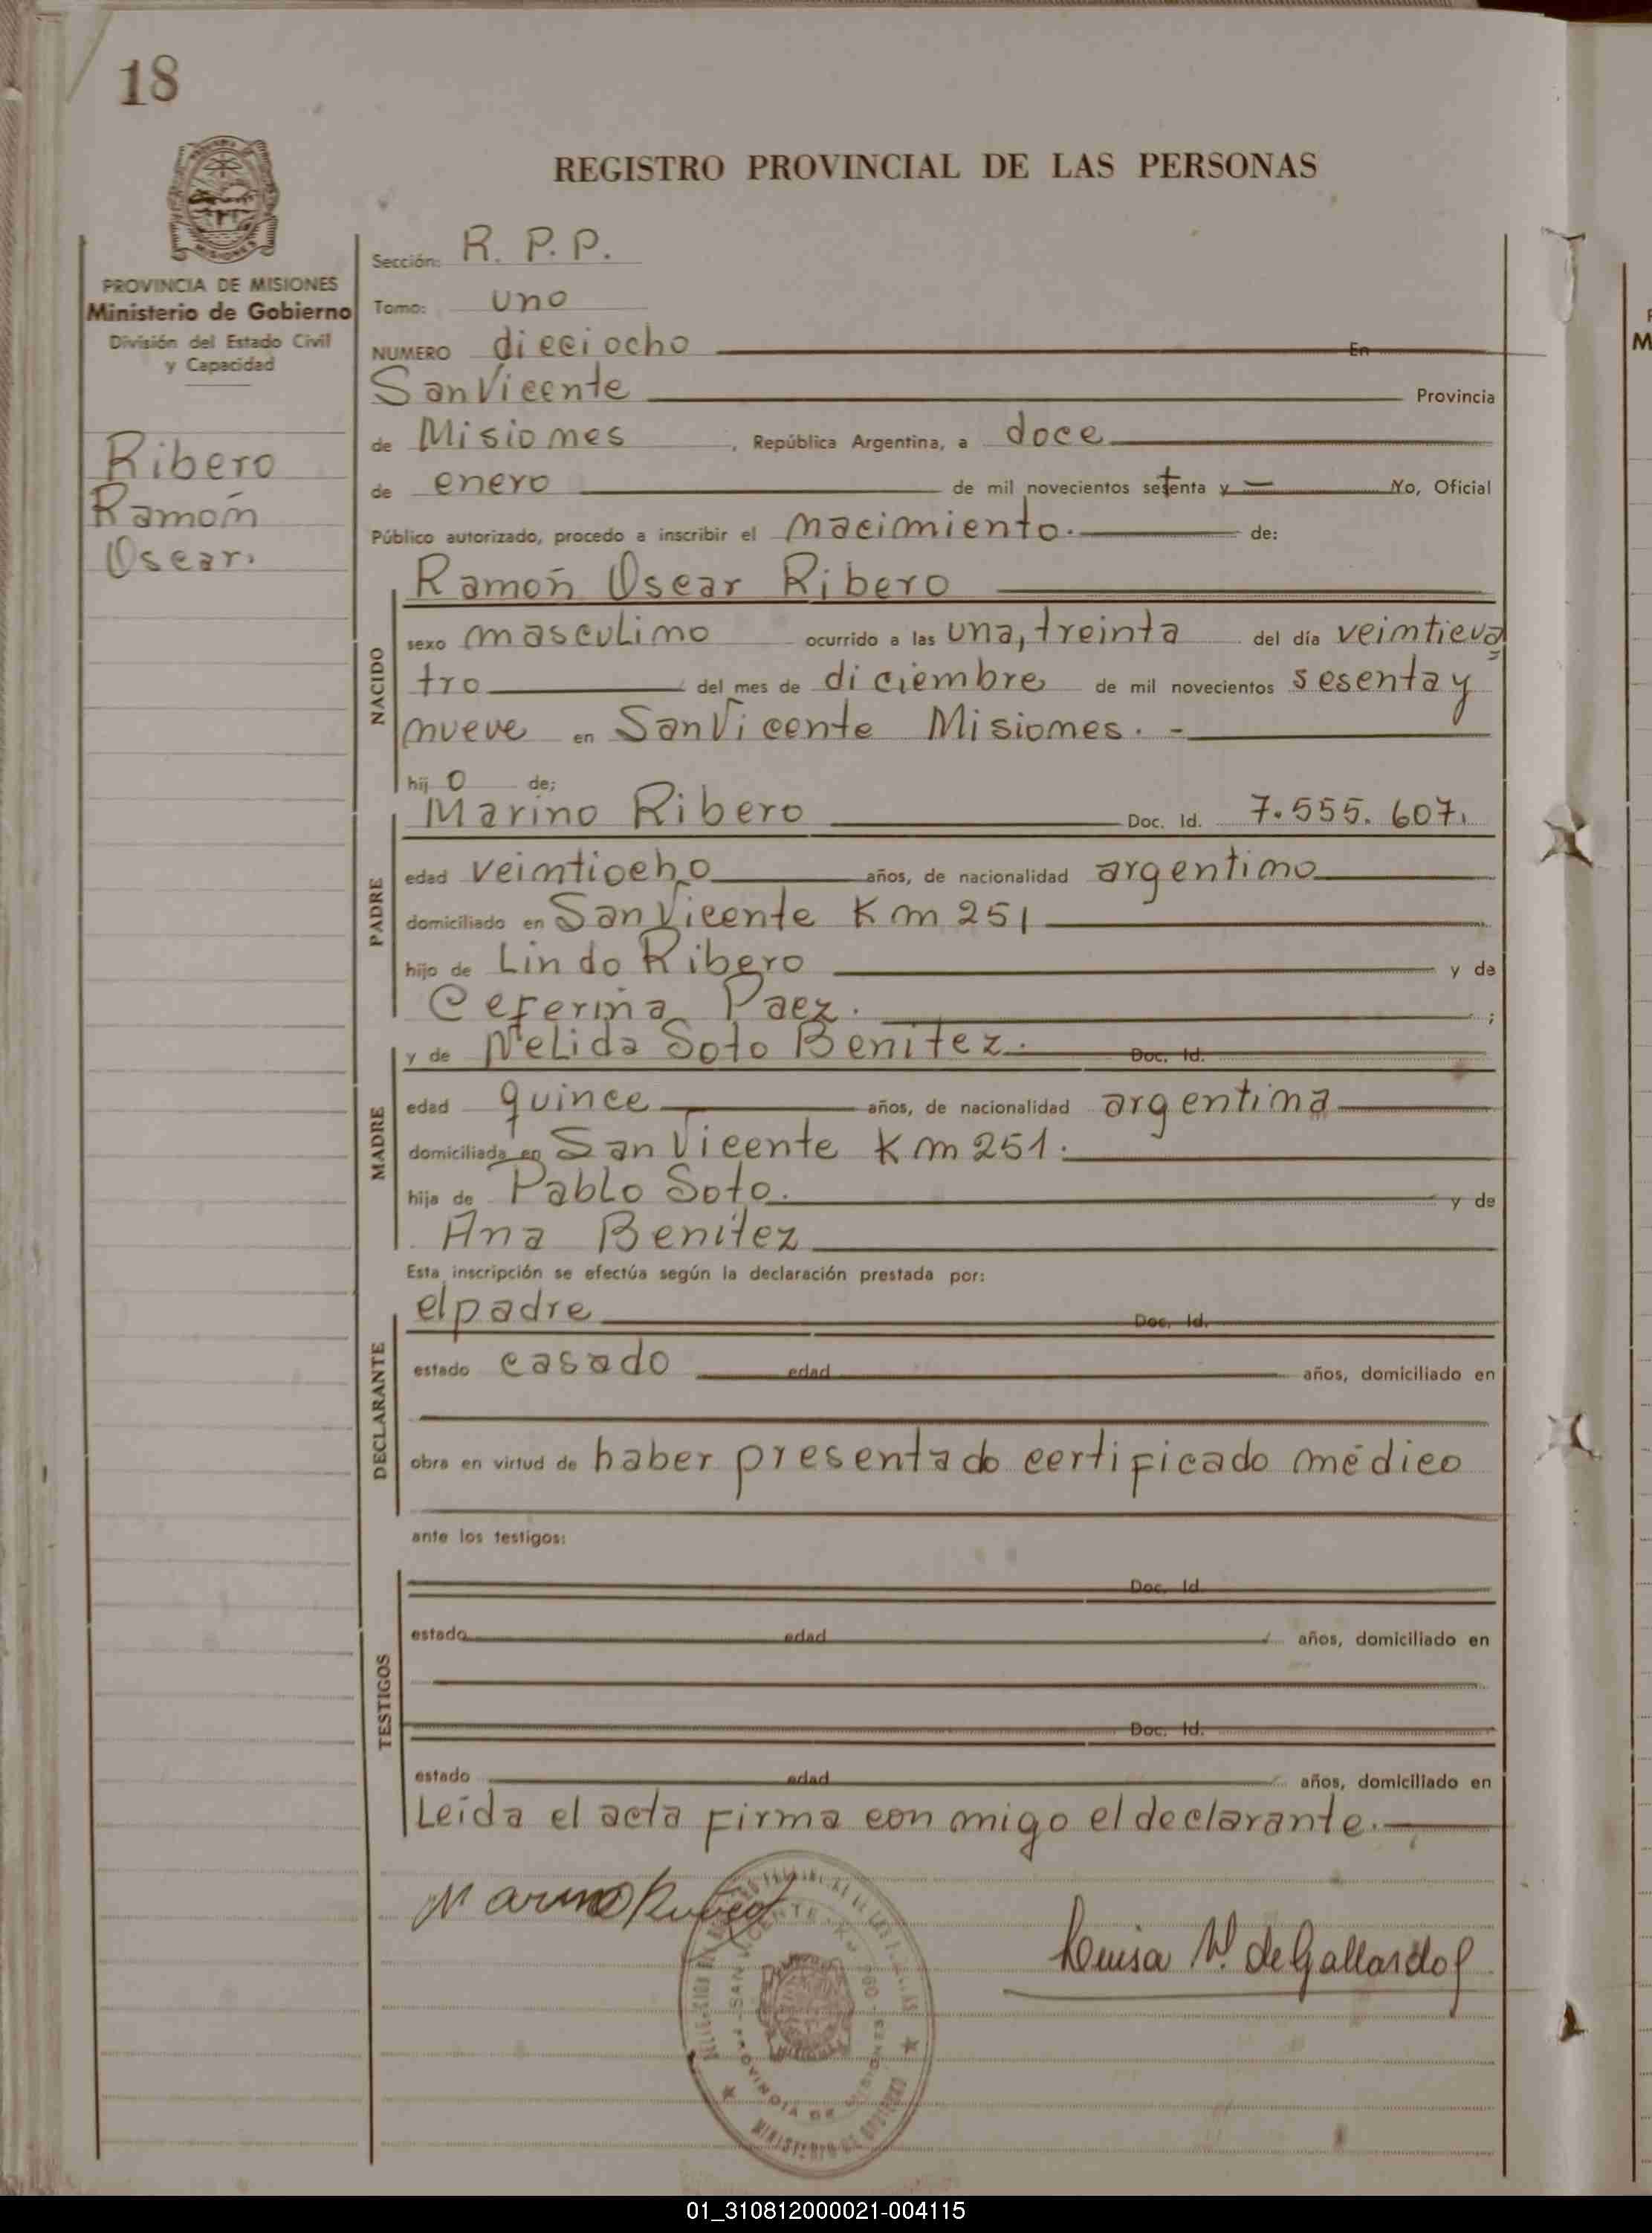 18
REGISTRO PROVINCIAL DE LAS PERSONAS
PROVINCIA DE MISIONES
Ministerio de Gobierno
División del Estado Civil
y Capacidad
Ribero
Ramón
Oscar.
Sección: R. P. P.
Tomo: uno
NUMERO dieciocho En
San Vicente Provincia
de Misiones, República Argentina, a doce
de enero de mil novecientos setenta y — Yo, Oficial
Público autorizado, procedo a inscribir el nacimiento. de:
NACIDO
Ramón Oscar Ribero
sexo masculino ocurrido a las una, treinta del día veinticua
tro del mes de diciembre de mil novecientos sesenta y
nueve en San Vicente Misiones. -
hijo de;
PADRE
Marino Ribero Doc. Id. 7.555.607.
edad veintiocho años, de nacionalidad argentino
domiciliado en San Vicente Km 251
hijo de Lindo Ribero y de
Ceferina Paez. ;
MADRE
y de Nelida Soto Benitez. Doc. Id.
edad quince años, de nacionalidad argentina
domiciliada en San Vicente Km 251.
hija de Pablo Soto. y de
Ana Benitez
Esta inscripción se efectúa según la declaración prestada por:
DECLARANTE
el padre Doc. Id.
estado casado edad años, domiciliado en
obra en virtud de haber presentado certificado médico
ante los testigos:
TESTIGOS
Doc. Id.
estado edad años, domiciliado en
Doc. Id.
estado edad años, domiciliado en
Leida el acta firma con migo el declarante.
Marino Ribero
Luisa N. de Gallardo
SAN VICENTE
PROVINCIA DE MISIONES
MINISTERIO DE GOBIERNO
01_310812000021-004115